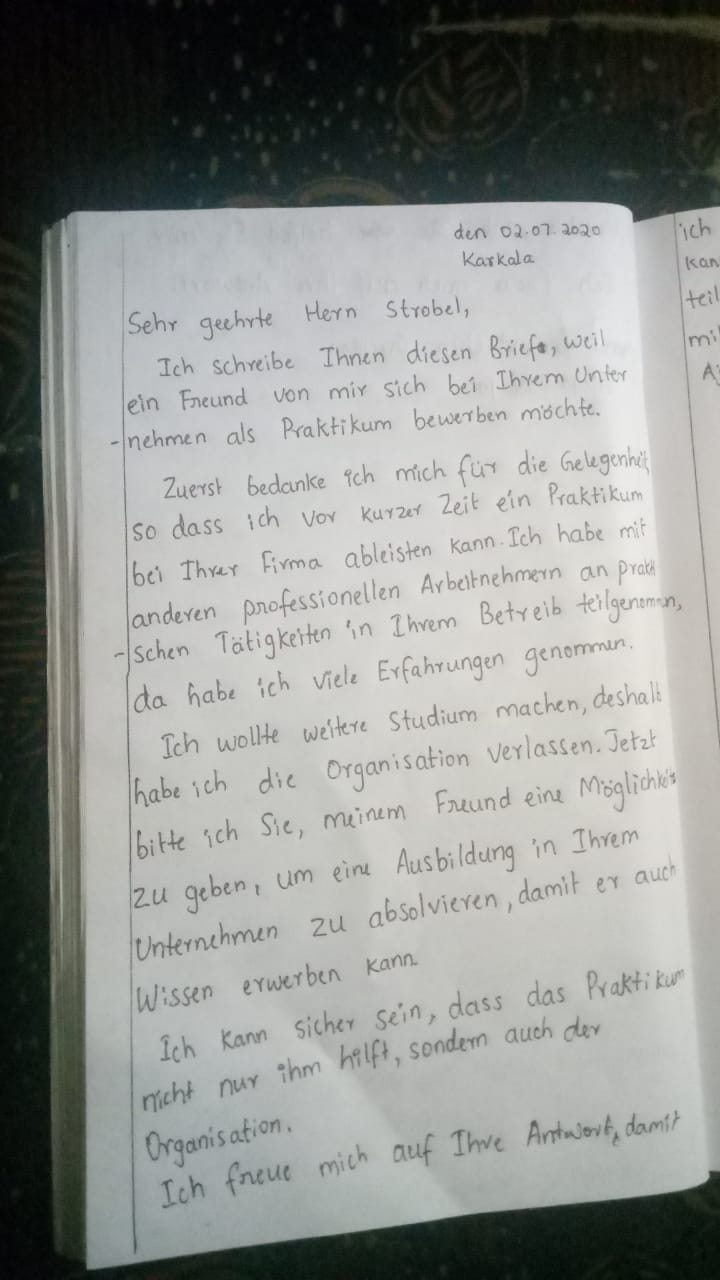 den 02.07.2020
Karkala
Sehr geehrte Hern Strobel,
Ich schreibe Ihnen diesen Briefe, weil
ein Freund von mir sich bei Ihrem Unter
-nehmen als Praktikum bewerben möchte.
Zuerst bedanke ich mich für die Gelegenheit,
so dass ich vor kurzer Zeit ein Praktikum
bei Ihrer Firma ableisten kann. Ich habe mit
anderen professionellen Arbeitnehmern an prakti
-schen Tätigkeiten in Ihrem Betreib teilgenommen,
da habe ich viele Erfahrungen genommen.
Ich wollte weitere Studium machen, deshalb
habe ich die Organisation verlassen. Jetzt
bitte ich Sie, meinem Freund eine Möglichkeit
zu geben, um eine Ausbildung in Ihrem
Unternehmen zu absolvieren, damit er auch
Wissen erwerben kann.
Ich kann sicher sein, dass das Praktikum
nicht nur ihm hilft, sondern auch der
Organisation.
Ich freue mich auf Ihre Antwort, damit
ich
kan
teil
mi